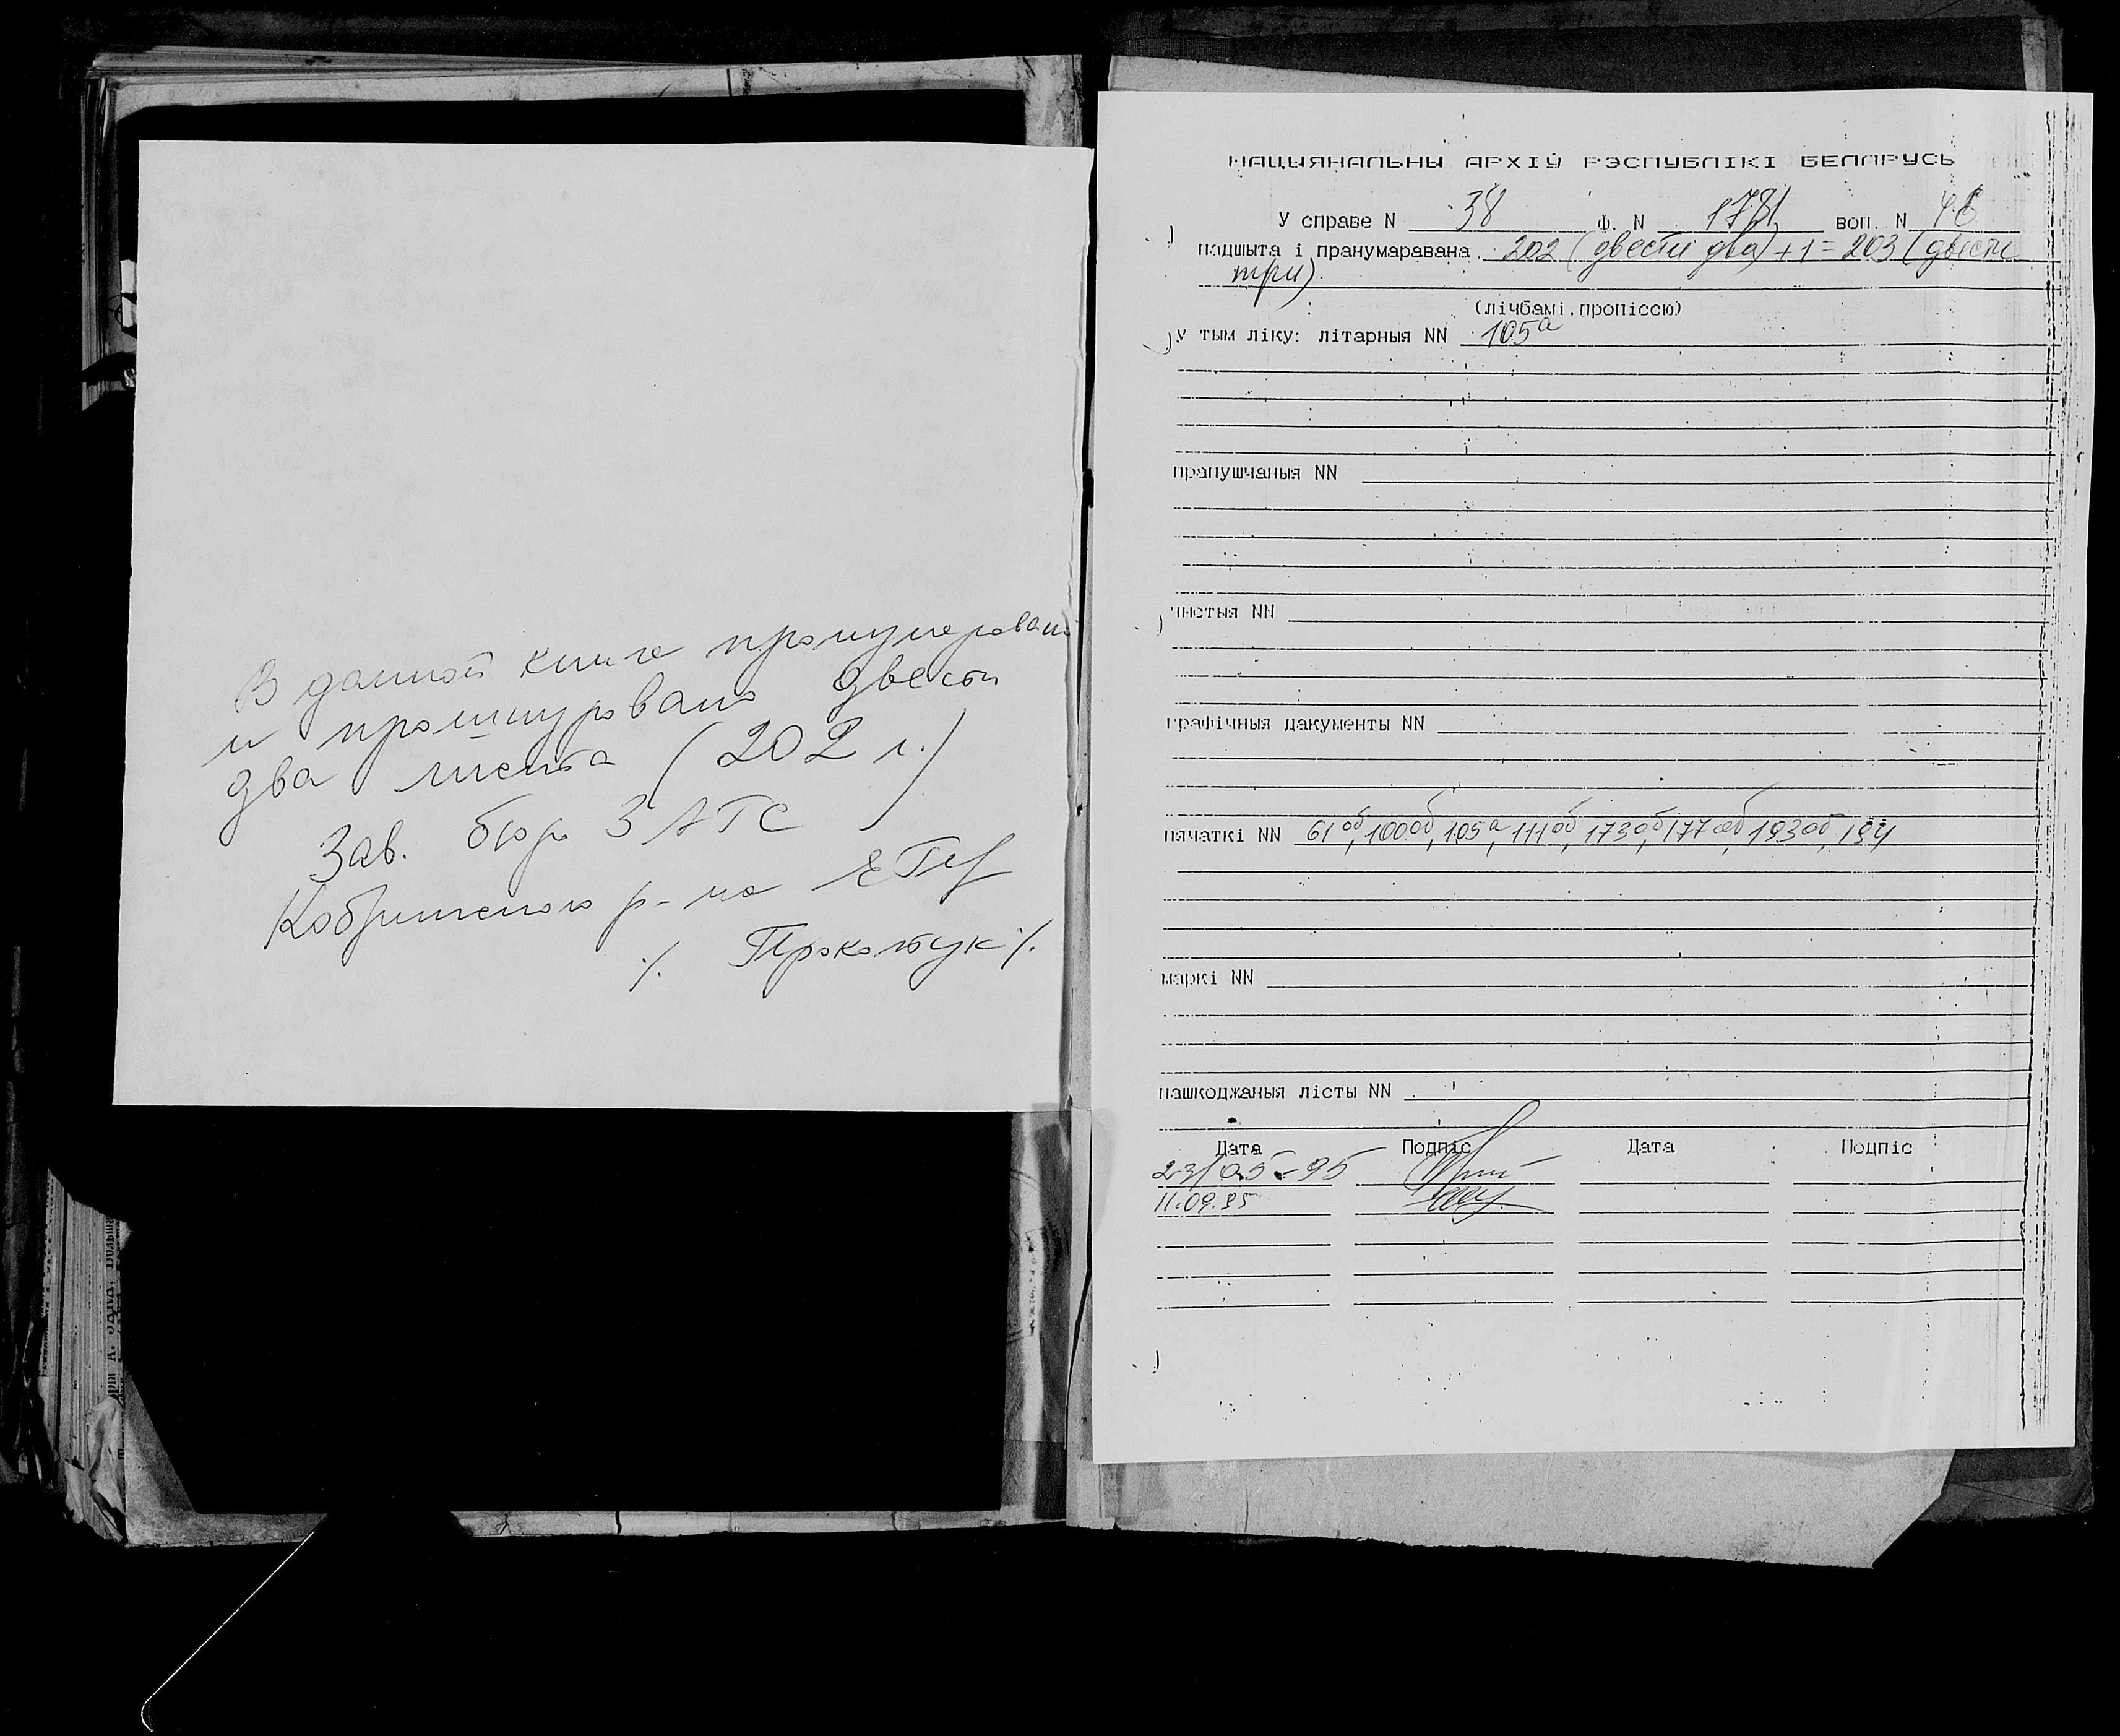 В данной книге пронумеровано
и прошнуровано двести
два листа (202 л.)
Зав. бюро ЗАГС
Кобринского р-на
·/. Прокопчук ·/.
НАЦЫЯНАЛЬНЫ АРХІЎ РЭСПУБЛІКІ БЕЛАРУСЬ
У справе N 38 Ф. N 1781 воп. N
падшыта і пранумаравана 202 (двести два) + 1 = 203 (двести
три)
(лічбамі, пропіссю)
у тым ліку: літарныя NN 105а
прапушчаныя NN
чыстыя NN
графічныя дакументы NN
пячаткі NN 61об, 100об, 105а, 111об, 173об, 177об, 193об, 194
маркі NN
пашкоджаныя лісты NN
Дата Подпіс Дата Подпіс
23/05-95
11.09.95